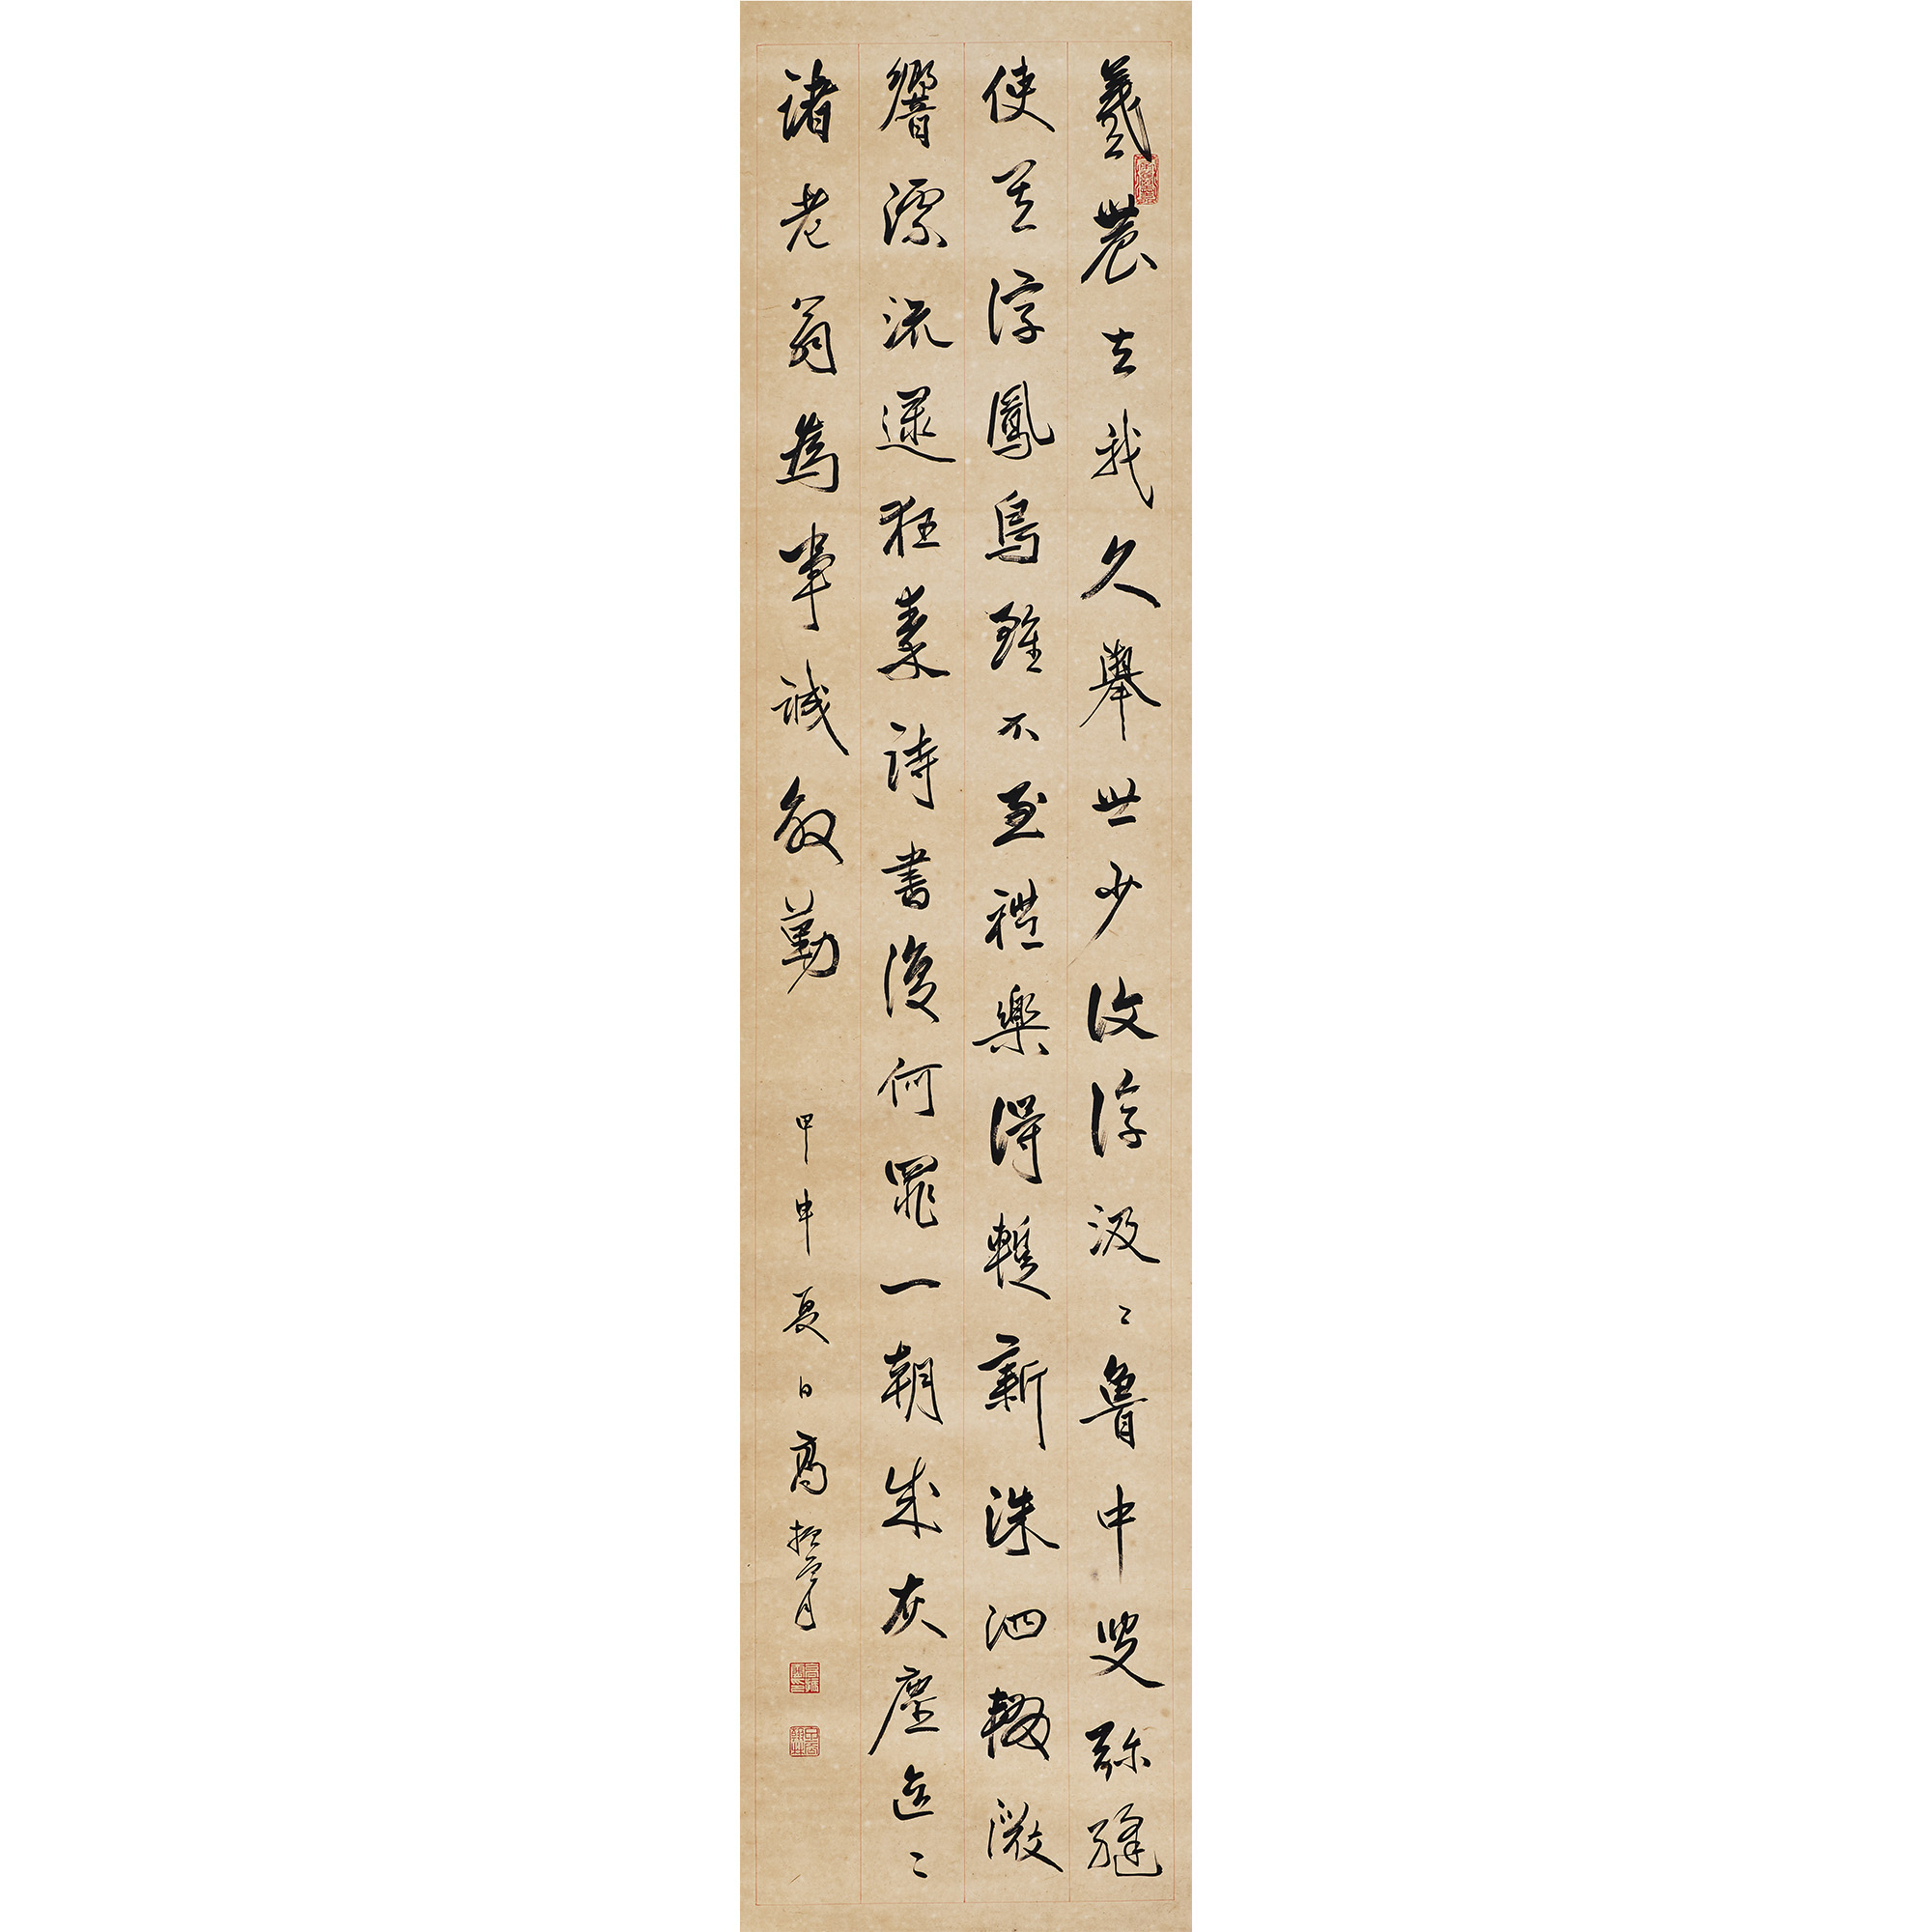 羲農去我久舉世少復淳汲〻魯中叟弥縫
使其淳鳳鳥雖不至禮樂得暫新洙泗輟微
響漂流逮狂秦詩書復何罪一朝成灰塵區〻
諸老翁為事誠殷勤 甲申夏日高振霄